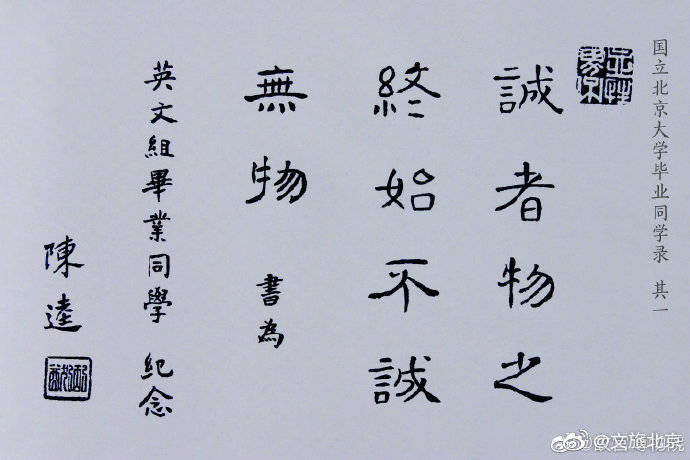 国立北京大学毕业同学录 其一
誠者物之
終始不誠
無物 書為
英文組畢業同學 紀念
陳逵
@文旅北京